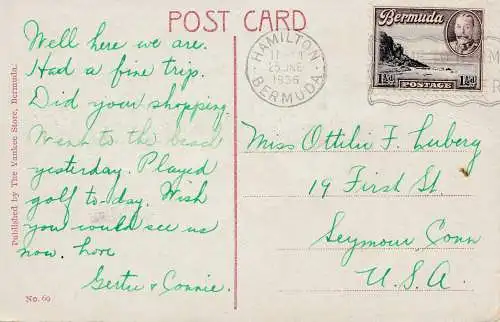 POST CARD
Well here we are.
Had a fine trip.
Did your shopping.
Went to the beach
yesterday. Played
golf to-day. Wish
you would see us
now. Love
Gertie & Connie.
No. 60
Published by The Yankee Store, Bermuda.
HAMILTON
JUNE
1936
BERMUDA
Bermuda
1½d
1½d
POSTAGE
Miss Ottilie F. Luberg
19 First St.
Seymour, Conn
U.S.A.